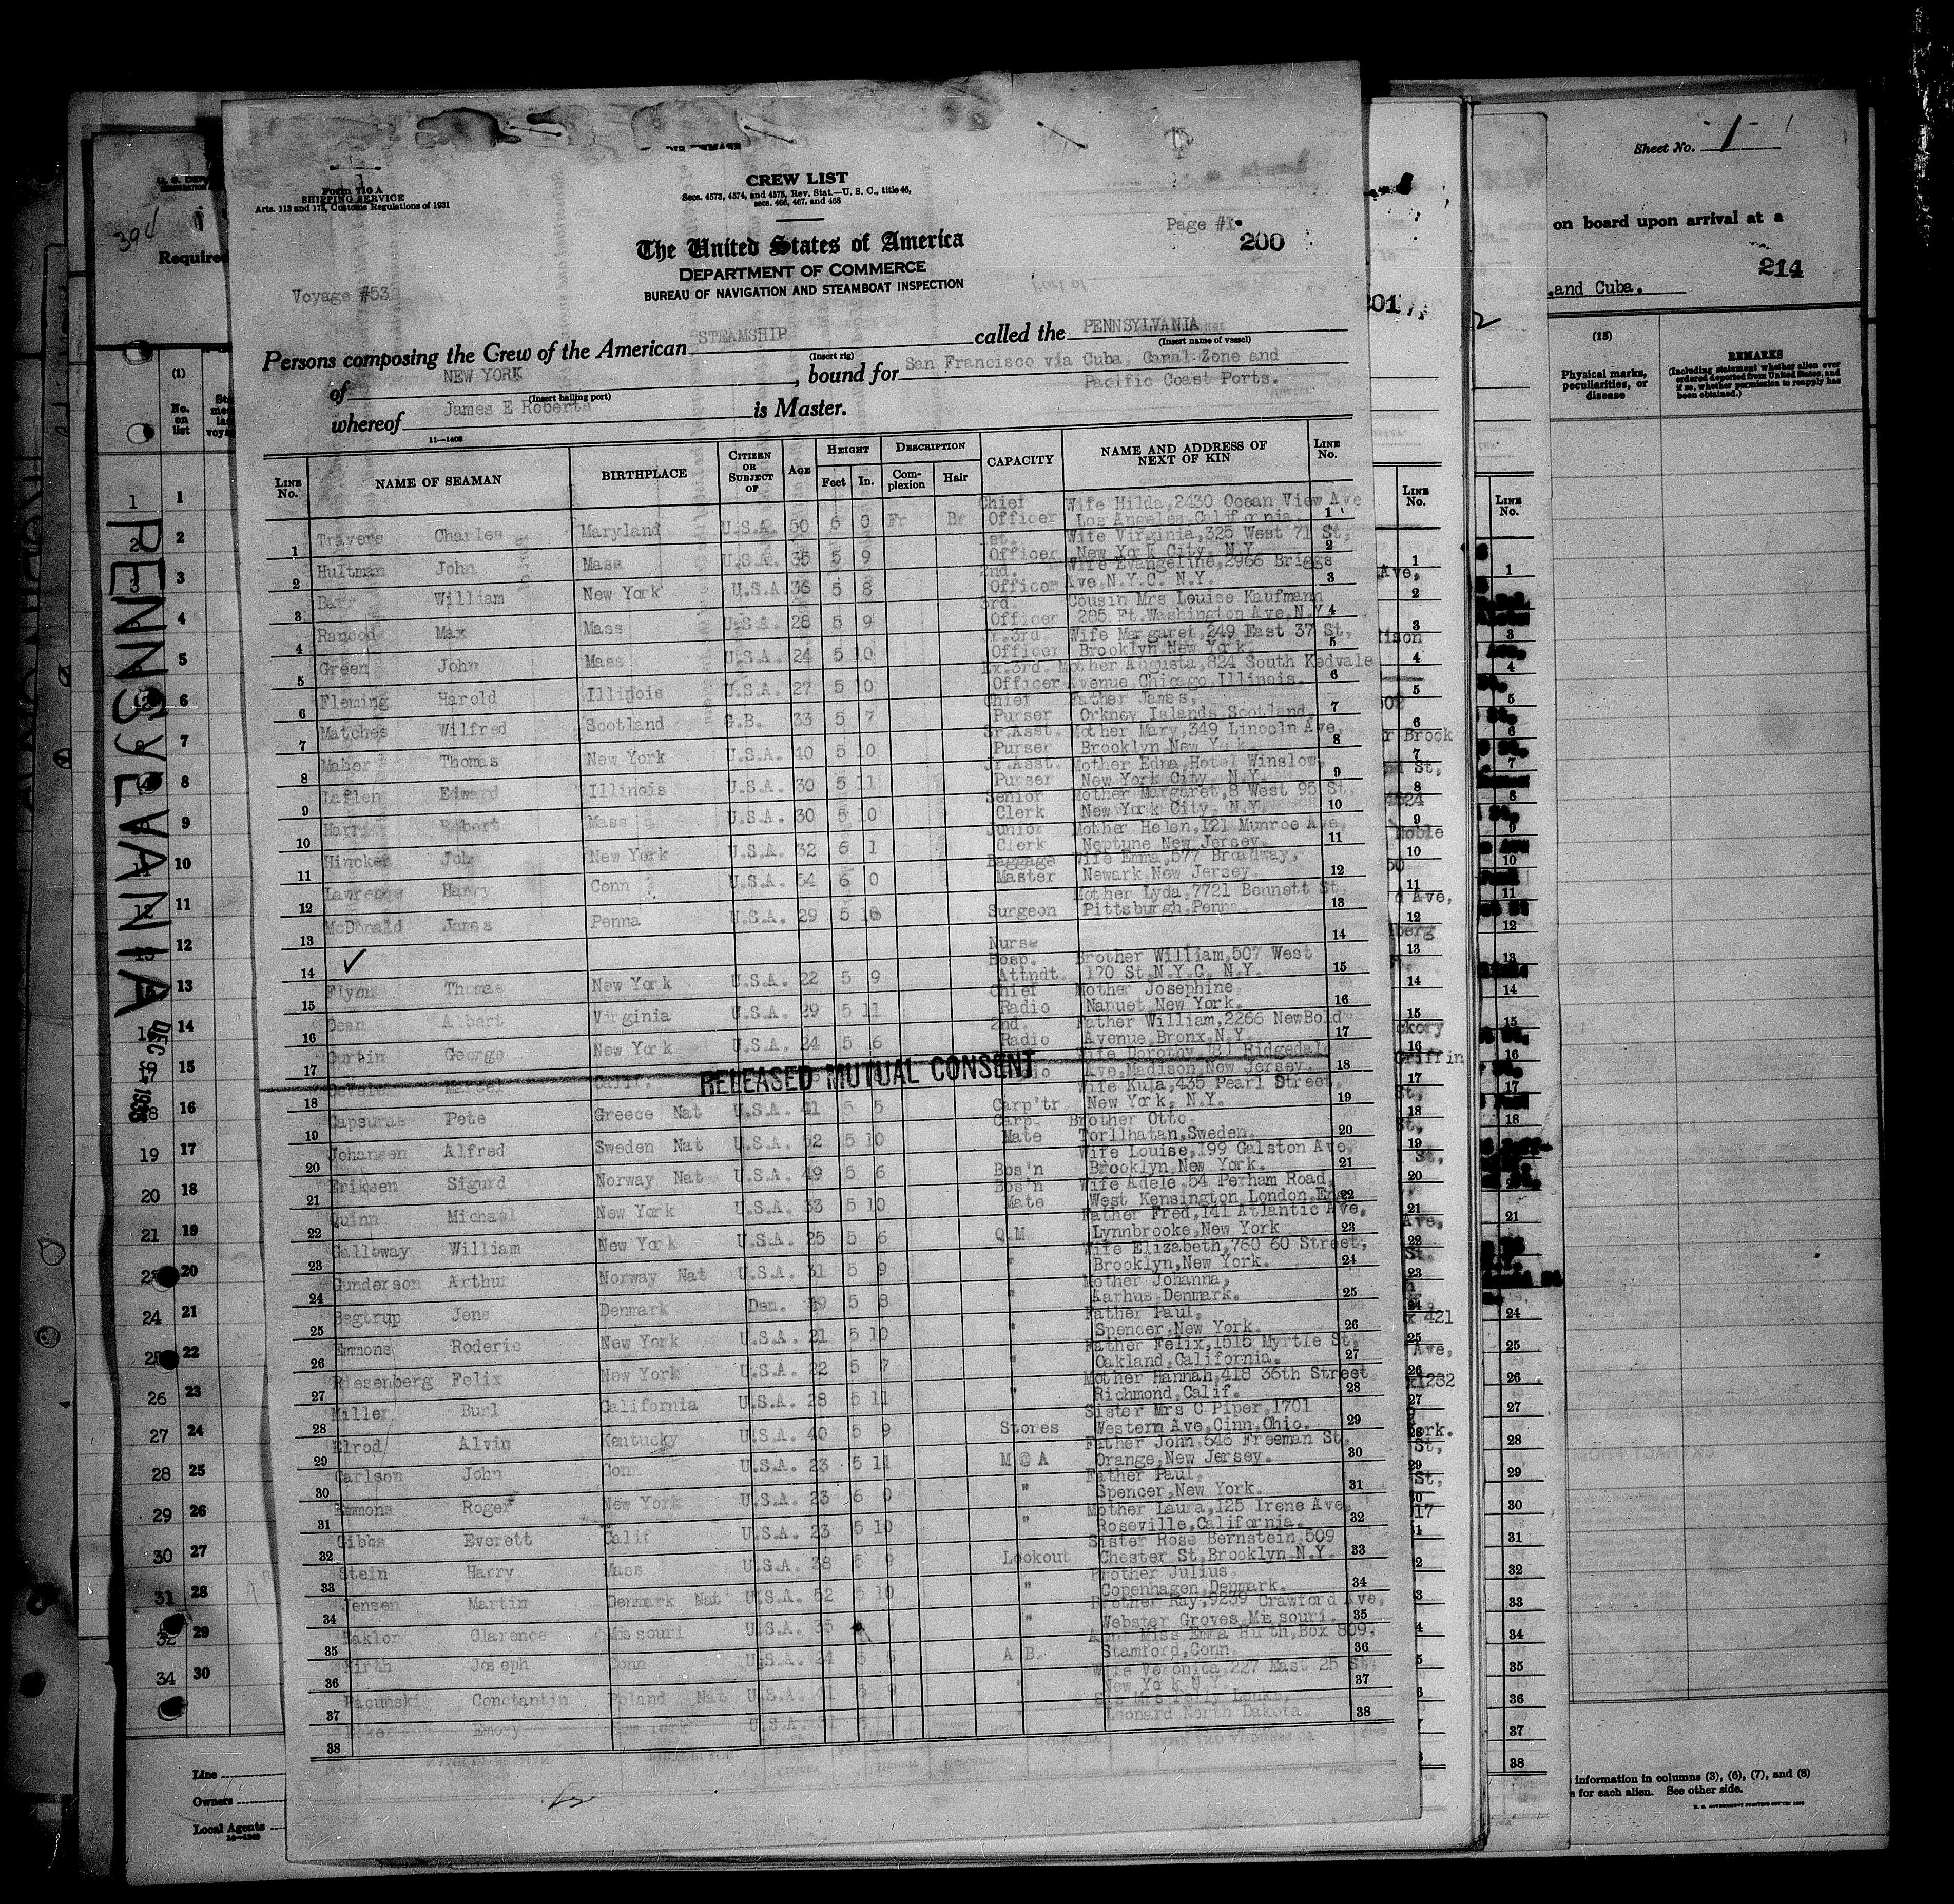 Form 710 A
SHIPPING SERVICE
Arts. 113 and 175, Customs Regulations of 1931
CREW LIST
Secs. 4573, 4574, and 4575, Rev. Stat.—U. S. C., title 46,
secs. 466, 467, and 468
Page #1.
200
The United States of America
DEPARTMENT OF COMMERCE
BUREAU OF NAVIGATION AND STEAMBOAT INSPECTION
Voyage #53
Persons composing the Crew of the American STEAMSHIP called the PENNSYLVANIA
(Insert rig) (Insert name of vessel)
of NEW YORK, bound for San Francisco via Cuba, Canal Zone and
(Insert hailing port) Pacific Coast Ports.
whereof James E Roberts is Master.
11—1408
LINE No. NAME OF SEAMAN BIRTHPLACE CITIZEN OR SUBJECT OF AGE HEIGHT Feet In. DESCRIPTION Complexion Hair CAPACITY NAME AND ADDRESS OF NEXT OF KIN LINE No.
1 Travers Charles Maryland U.S.A. 50 6 0 Fr Br Chief Officer Wife Hilda,2430 Ocean View Ave Los Angeles,California 1
2 Hultman John Mass U.S.A. 35 5 9 1st. Officer Wife Virginia,325 West 71 St, New York City, N.Y. 2
3 Barr William New York U.S.A. 36 5 8 2nd. Officer Wife Evangeline,2966 Briggs Ave,N.Y.C. N.Y. 3
4 Max Mass U.S.A. 28 5 9 3rd. Officer Cousin Mrs Louise Kaufmann 285 Ft.Washington Ave,N.Y. 4
5 Green John Mass U.S.A. 24 5 10 Jr.3rd. Officer Wife Margaret,249 East 37 St, Brooklyn,New York. 5
6 Fleming Harold Illinois U.S.A. 27 5 10 Ex.3rd. Officer Mother Augusta,824 South Kedvale Avenue,Chicago,Illinois. 6
7 Matches Wilfred Scotland G.B. 33 5 7 Chief Purser Father James, Orkney Islands,Scotland. 7
8 Maher Thomas New York U.S.A. 40 5 10 Sr.Asst. Purser Mother Mary,349 Lincoln Ave, Brooklyn,New York. 8
9 Laflen Edward Illinois U.S.A. 30 5 11 Jr.Asst. Purser Mother Edna,Hotel Winslow, New York City, N.Y. 9
10 Robert Mass U.S.A. 30 5 10 Senior Clerk Mother Margaret,8 West 95 St, New York City, N.Y. 10
11 New York U.S.A. 32 6 1 Junior Clerk Mother Helen,121 Munroe Ave, Neptune,New Jersey. 11
12 Lawrence Harry Conn U.S.A. 54 6 0 Baggage Master Wife Emma,577 Broadway, Newark,New Jersey. 12
13 McDonald James Penna U.S.A. 29 5 Surgeon Mother Lyda,7721 Bennett St, Pittsburgh,Penna. 13
14 ✓ Nurse 14
15 Flynn Thomas New York U.S.A. 22 5 9 Hosp. Attndt. Brother William,507 West 170 St,N.Y.C. N.Y. 15
16 Dean Albert Virginia U.S.A. 29 5 11 Chief Radio Mother Josephine, Nanuet,New York. 16
17 Curtin George New York U.S.A. 24 5 6 2nd. Radio Father William,2266 NewBold Avenue,Bronx,N.Y. 17
18 Marcel Calif. RELEASED MUTUAL CONSENT Wife Dorothy,181 Ridgedale Ave,Madison,New Jersey. 18
19 Capsuras Pete Greece Nat U.S.A. 41 5 5 Carp'tr Wife Kula,435 Pearl Street, New York, N.Y. 19
20 Johansen Alfred Sweden Nat U.S.A. 52 5 10 Carp. Mate Brother Otto. Torllhatan,Sweden. 20
21 Eriksen Sigurd Norway Nat U.S.A. 49 5 6 Bos'n Wife Louise,199 Galston Ave, Brooklyn,New York. 21
22 Quinn Michael New York U.S.A. 33 5 10 Bos'n Mate Wife Adele,54 Perham Road, West Kensington,London,Eng. 22
23 Galloway William New York U.S.A. 25 5 6 Q.M. Father Fred,141 Atlantic Ave, Lynnbrooke,New York 23
24 Gunderson Arthur Norway Nat U.S.A. 31 5 9 " Wife Elizabeth,760 60 Street, Brooklyn,New York. 24
25 Bagtrup Jens Denmark Dan. 5 8 " Mother Johanna, Aarhus,Denmark. 25
26 Emmons Roderic New York U.S.A. 21 5 10 " Father Paul, Spencer,New York. 26
27 Riesenberg Felix New York U.S.A. 22 5 7 " Father Felix,1515 Myrtle St, Oakland,California. 27
28 Miller Burl California U.S.A. 28 5 11 " Mother Hannah,418 36th Street Richmond,Calif. 28
29 Elrod Alvin Kentucky U.S.A. 40 5 9 Stores Sister Mrs C Piper,1701 Western Ave,Cinn,Ohio. 29
30 Carlson John Conn U.S.A. 23 5 11 M @ A Father John,646 Freeman St, Orange,New Jersey. 30
31 Emmons Roger New York U.S.A. 23 6 0 " Father Paul, Spencer,New York. 31
32 Gibbs Everett Calif U.S.A. 23 5 10 " Mother Laura,125 Irene Ave, Roseville,California. 32
33 Stein Harry Mass U.S.A. 38 5 9 Lookout Sister Rose Bernstein,509 Chester St,Brooklyn,N.Y. 33
34 Jensen Martin Denmark Nat U.S.A. 52 5 10 " Brother Julius, Copenhagen,Denmark. 34
35 Clarence Missouri U.S.A. 35 " Brother Ray,9239 Crawford Ave, Webster Groves,Missouri. 35
36 Hirth Joseph Conn U.S.A. 24 5 A.B. Aunt Miss Emma Hirth,Box 809, Stamford,Conn. 36
37 Constantin Poland Nat U.S.A. 41 5 9 Wife Veronica,227 East 25 St. New York N.Y. 37
38 Emory New York U.S.A. Leonard North Dakota. 38
PENNSYLVANIA
DEC 1936
394
Required
(1)
No. on list
Line
Owners
Local Agents
Sheet No. 1
on board upon arrival at a
214
and Cuba.
(15)
Physical marks, peculiarities, or disease
REMARKS
(Including statement whether alien ever ordered deported from United States, and if so, whether permission to reapply has been obtained.)
LINE No.
LINE No.
information in columns (3), (6), (7), and (8)
s for each alien. See other side.